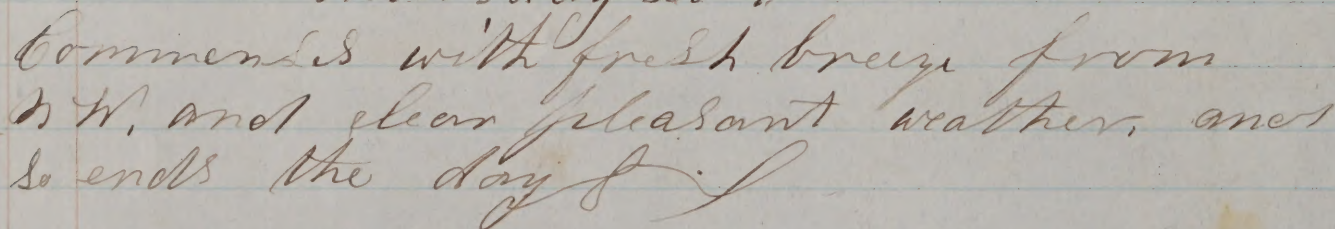 Commences with fresh breeze from
N W. and clear pleasant weather, and
so ends the day